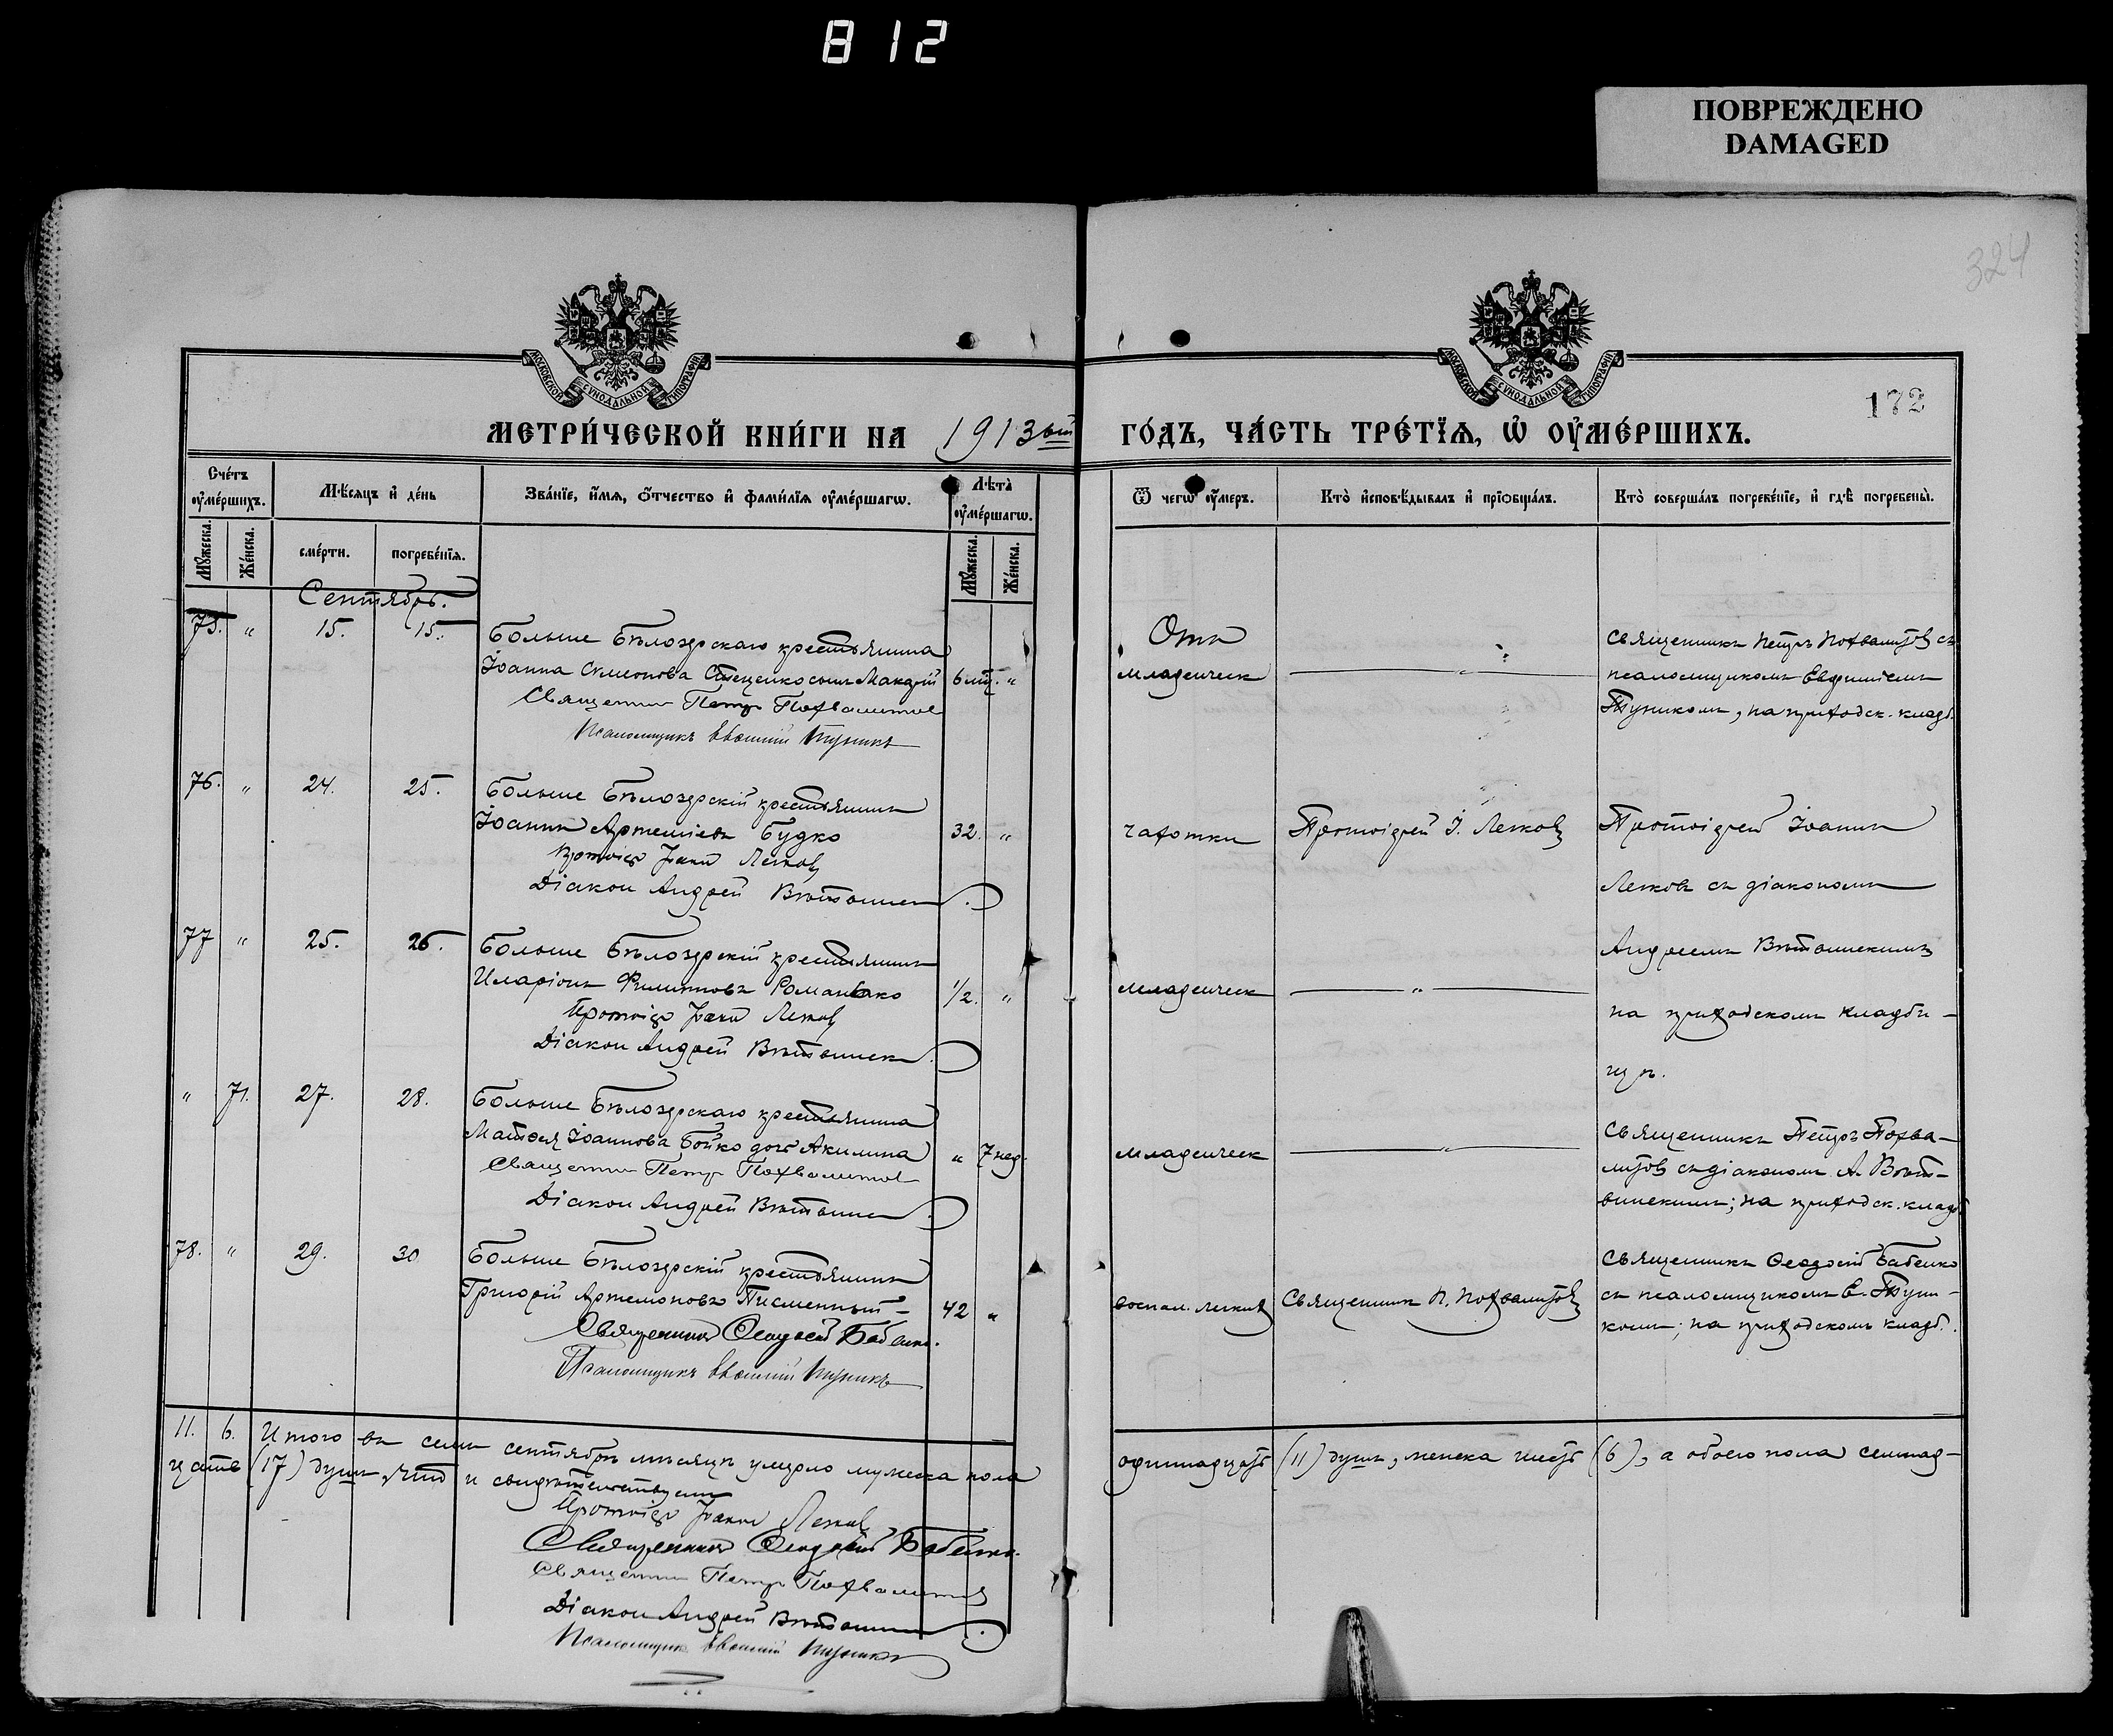 812
ПОВРЕЖДЕНО
DAMAGED
324
172
МОСКОВСКОЙ СѴНОДАЛЬНОЙ ТИПОГРАФІИ
МОСКОВСКОЙ СѴНОДАЛЬНОЙ ТИПОГРАФІИ
МЕТРИ́ЧЕСКОЙ КНИ́ГИ НА 1913ый ГО́ДЪ, ЧА́СТЬ ТРЕ́ТІѦ, Ѡ ОУ҆МЕ́РШИХЪ.
Сче́тъ оу҆ме́ршихъ.
Мꙋ́жеска.
Же́нска.
Мѣ́сяцъ и҆ де́нь
сме́рти.
погребе́нїѧ.
Зва́нїе, и҆́мѧ, ѻ҆́тчество и҆ фами́лїѧ оу҆ме́ршагѡ.
Лѣ́та оу҆ме́ршагѡ.
Мꙋ́жеска.
Же́нска.
Ѿ чегѡ̀ оу҆́меръ.
Кто̀ и҆сповѣ́дывалъ и҆ прїѡбща́лъ.
Кто̀ соверша́лъ погребе́нїе, и҆ гдѣ̀ погребены̀.
Сентябрь.
75. " 15. 15. Больше Бѣлозерскаго крестьянина
Іоанна Симеонова Стеценко сынъ Макарій 6 мѣс. "
Священник Петр Похвалитов
Псаломщикъ Евѳимій Туникъ
Отъ
младенческ "
Священникъ Петръ Похвалитовъ съ
псаломщикомъ Евфиміемъ
Туникомъ, на приходск. кладб.
76. " 24. 25. Больше Бѣлозерскій крестьянинъ
Іоаннъ Артеміевъ Будко 32. "
Протоіер Іоанн Легков
Діакон Андрей
чахотки Протоіерей І. Легковъ
Протоіерей Іоаннъ
Легковъ съ діакономъ
77 " 25. 26. Больше Бѣлозерскій крестьянинъ
Иларіонъ Филипповъ Романько 1/2. "
Протоіер Іоанн Легков
Діакон Андрей
младенческ "
Андреемъ
на приходскомъ кладби-
щѣ.
" 71. 27. 28. Больше Бѣлозерскаго крестьянина
Матѳея Іоаннова Бойко дочь Акилина " 7 нед.
Священник Петр Похвалитов
Діакон Андрей
младенческ "
Священникъ Петръ Похва-
литовъ съ діакономъ А. Вѣт-
винскимъ; на приходск. кладб
78. " 29. 30 Больше Бѣлозерскій крестьянинъ
Григорій Артемоновъ Писменный- 42 "
Священникъ Ѳеодосій Бабенко.
Псаломщикъ Евѳимій Туникъ
воспал. легкихъ Священник П. Похвалитовъ
Священникъ Ѳеодосій Бабенко
съ псаломщикомъ Е. Туни-
комъ; на приходскомъ кладб.
11. 6. Итого въ семъ сентябрѣ мѣсяцѣ умерло мужеска пола одиннадцать (11) душъ, женска шесть (6), а обоего пола семнад-
цать (17) душъ, что и свидѣтельствуемъ
Протоіер Іоанн Легков
Священникъ Ѳеодосій Бабенко.
Священник Петр Похвалитов
Діакон Андрей
Псаломщик Евѳимій Туникъ